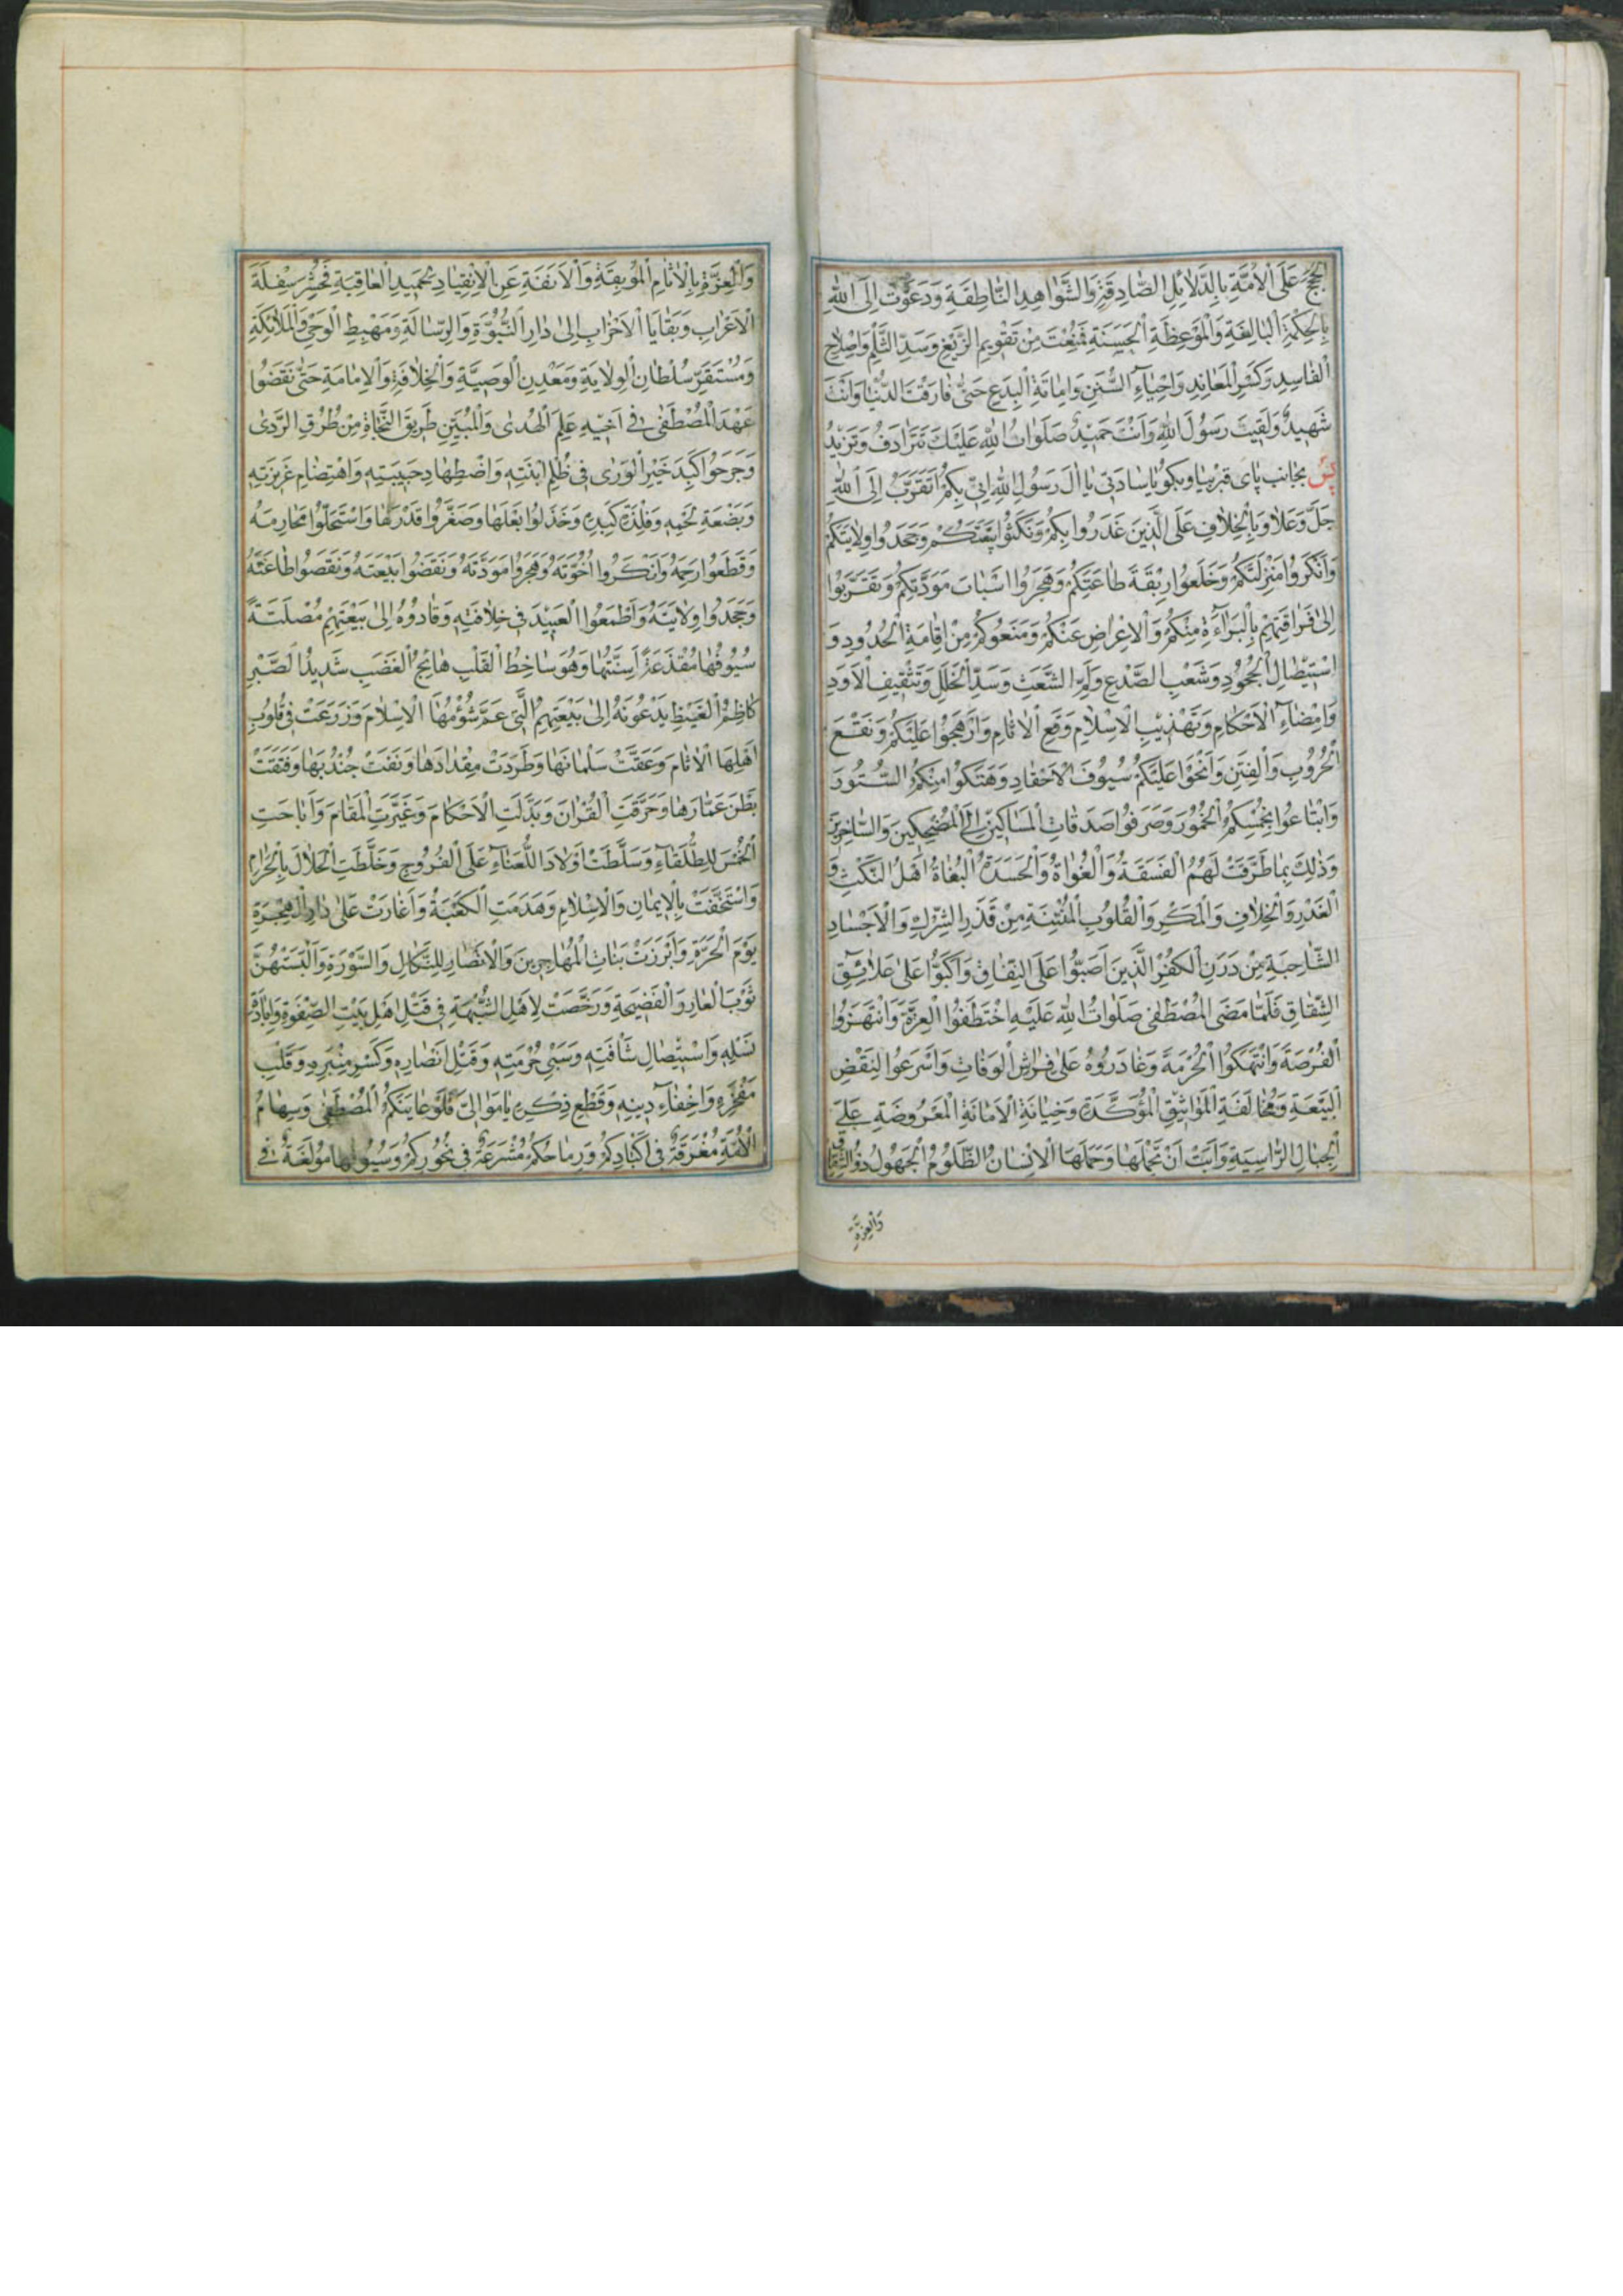 الْحُجَجَ عَلَى الْاُمَّةِ بِالدَّلَائِلِ الصَّادِقَةِ وَالشَّوَاهِدِ النَّاطِقَةِ وَدَعَوْتَ اِلَى اللّٰهِ
بِالْحِكْمَةِ الْبَالِغَةِ وَالْمَوْعِظَةِ الْحَسَنَةِ فَمُنِعْتَ مِنْ تَقْوِيمِ الزَّيْغِ وَسَدِّ الثَّلْمِ وَاِصْلَاحِ
الْفَاسِدِ وَكَسْرِ الْمَعَانِدِ وَاِحْيَآءِ السُّنَنِ وَاِمَاتَةِ الْبِدَعِ حَتّٰى فَارَقْتَ الدُّنْيَا وَاَنْتَ
شَهِيدٌ وَلَقِيتَ رَسُولَ اللّٰهِ وَاَنْتَ حَمِيدٌ صَلَوَاتُ اللّٰهِ عَلَيْكَ تَتَرَادَفُ وَتَزِيدُ
پس بجانب پای قبر بیا وبكو يَا سَادَتِى يَا اٰلَ رَسُولِ اللّٰهِ اِنِّى بِكُمْ اَتَقَرَّبُ اِلَى اللّٰهِ
جَلَّ وَعَلَا وَبِالْخِلَافِ عَلَى الَّذِينَ غَدَرُوا بِكُمْ وَنَكَثُوا بَيْعَتَكُمْ وَجَحَدُوا وِلَايَتَكُمْ
وَاَنْكَرُوا مَنْزِلَتَكُمْ وَخَلَعُوا رِبْقَةَ طَاعَتِكُمْ وَهَجَرُوا اَسْبَابَ مَوَدَّتِكُمْ وَتَقَرَّبُوا
اِلٰى فَرَاقِنَتِهِمْ بِالْبَرَآءَةِ مِنْكُمْ وَالْاِعْرَاضِ عَنْكُمْ وَمَنَعُوكُمْ مِنْ اِقَامَةِ الْحُدُودِ وَ
اسْتِيْصَالِ الْجُحُودِ وَشَعْبِ الصَّدْعِ وَلَمِّ الشَّعَثِ وَسَدِّ الْخَلَلِ وَتَثْقِيفِ الْاَوَدِ
وَاِمْضَآءِ الْاَحْكَامِ وَتَهْذِيبِ الْاِسْلَامِ وَقَمْعِ الْاٰثَامِ وَاَرْهَجُوا عَلَيْكُمْ وَنَقْعَ
الْحُرُوبِ وَالْفِتَنِ وَاَنْحَوْا عَلَيْكُمْ سُيُوفَ الْاَحْقَادِ وَهَتَكُوا مِنْكُمُ السُّتُورَ
وَابْتَاعُوا بِخُمْسِكُمُ الْخُمُورَ وَصَرَفُوا صَدَقَاتِ الْمَسَاكِينِ اِلَى الْمُضْحِكِينَ وَالسَّاخِرِينَ
وَذٰلِكَ بِمَا طَرَّقَتْ لَهُمُ الْفَسَقَةُ وَالْغُوَاةُ وَالْحَسَدَةُ الْبُغَاةُ اَهْلُ النَّكْثِ وَ
الْغَدْرِ وَالْخِلَافِ وَالْمَكْرِ وَالْقُلُوبِ الْمُنْتِنَةِ مِنْ قَذَرِ الشِّرْكِ وَالْاَجْسَادِ
الشَّاحِبَةِ مِنْ دَرَنِ الْكُفْرِ الَّذِينَ اَضَبُّوا عَلَى النِّفَاقِ وَاَكَبُّوا عَلٰى عَلَائِقِ
الشِّقَاقِ فَلَمَّا مَضَى الْمُصْطَفٰى صَلَوَاتُ اللّٰهِ عَلَيْهِ اخْتَطَفُوا الْعِزَّةَ وَانْتَهَزُوا
الْفُرْصَةَ وَانْتَهَكُوا الْحُرْمَةَ وَغَادَرُوهُ عَلٰى فِرَاشِ الْوَفَاتِ وَاَسْرَعُوا لِنَقْضِ
الْبَيْعَةِ وَمُخَالَفَةِ الْمَوَاثِيقِ الْمُؤَكَّدَةِ وَخِيَانَةِ الْاَمَانَةِ الْمَعْرُوضَةِ عَلَى
الْجِبَالِ الرَّاسِيَةِ وَاَبَتْ اَنْ تَحْمِلَهَا وَحَمَلَهَا الْاِنْسَانُ الظَّلُومُ الْجَهُولُ ذُو الشِّقَاقِ
وَالْعِزَّةِ
وَالْعِزَّةِ بِالْاٰثَامِ الْمُوبِقَةِ وَالْاَنَفَةِ عَنِ الْاِنْقِيَادِ لِحَمِيدِ الْعَاقِبَةِ فَحُشِرَ سِفْلَةَ
الْاَعْرَابِ وَبَقَايَا الْاَحْزَابِ اِلٰى دَارِ النُّبُوَّةِ وَالرِّسَالَةِ وَمَهْبِطِ الْوَحْىِ وَالْمَلَائِكَةِ
وَمُسْتَقَرِّ سُلْطَانِ الْوِلَايَةِ وَمَعْدِنِ الْوَصِيَّةِ وَالْخِلَافَةِ وَالْاِمَامَةِ حَتّٰى نَقَضُوا
عَهْدَ الْمُصْطَفٰى فِى اَخِيهِ عَلَمِ الْهُدٰى وَالْمُبَيِّنِ طَرِيقَ النَّجَاةِ مِنْ طُرُقِ الرَّدٰى
وَجَرَحُوا كَبِدَ خَيْرِ الْوَرٰى فِى ظُلْمِ ابْنَتِهِ وَاضْطِهَادِ حَبِيبَتِهِ وَاهْتِضَامِ عَزِيزَتِهِ
وَبَضْعَةِ لَحْمِهِ وَفِلْذَةِ كَبِدِهِ وَخَذَلُوا بَعْلَهَا وَصَغَّرُوا قَدْرَهَا وَاسْتَحَلُّوا مَحَارِمَهُ
وَقَطَعُوا رَحِمَهُ وَاَنْكَرُوا اُخُوَّتَهُ وَهَجَرُوا مَوَدَّتَهُ وَنَقَضُوا بَيْعَتَهُ وَنَقَصُوا طَاعَتَهُ
وَجَحَدُوا وِلَايَتَهُ وَاَطْمَعُوا الْعَبِيدَ فِى خِلَافَتِهِ وَقَادُوهُ اِلٰى بَيْعَتِهِمْ مُصْلَتَةً
سُيُوفُهَا مُقْذَعَةً اَسِنَّتُهَا وَهُوَ سَاخِطُ الْقَلْبِ هَائِجُ الْغَضَبِ شَدِيدُ الصَّبْرِ
كَاظِمُ الْغَيْظِ يَدْعُونَهُ اِلٰى بَيْعَتِهِمُ الَّتِى عَمَّ شُؤْمُهَا الْاِسْلَامَ وَزَرَعَتْ فِى قُلُوبِ
اَهْلِهَا الْاٰثَامَ وَعَقَّتْ سَلْمَانَهَا وَطَرَدَتْ مِقْدَادَهَا وَنَفَتْ جُنْدُبَهَا وَفَتَقَتْ
بَطْنَ عَمَّارَهَا وَحَرَّفَتِ الْقُرْاٰنَ وَبَدَّلَتِ الْاَحْكَامَ وَغَيَّرَتِ الْمَقَامَ وَاَبَاحَتِ
الْخُمْسَ لِلطُّلَقَآءِ وَسَلَّطَتْ اَوْلَادَ اللُّعَنَآءِ عَلَى الْفُرُوجِ وَخَلَّطَتِ الْحَلَالَ بِالْحَرَامِ
وَاسْتَخَفَّتْ بِالْاِيمَانِ وَالْاِسْلَامِ وَهَدَمَتِ الْكَعْبَةَ وَاَغَارَتْ عَلٰى دَارِ الْهِجْرَةِ
يَوْمَ الْحَرَّةِ وَاَبْرَزَتْ بَنَاتِ الْمُهَاجِرِينَ وَالْاَنْصَارِ لِلنَّكَالِ وَالسَّوْرَةِ وَاَلْبَسَتْهُنَّ
ثَوْبَ الْعَارِ وَالْفَضِيحَةِ وَرَخَّصَتْ لِاَهْلِ الشُّبْهَةِ فِى قَتْلِ اَهْلِ بَيْتِ الصِّفْوَةِ وَاِبَادَةِ
نَسْلِهِ وَاسْتِيْصَالِ شَافَتِهِ وَسَبْىِ حُرْمَتِهِ وَقَتْلِ اَنْصَارِهِ وَكَسْرِ مِنْبَرِهِ وَقَلْبِ
مَفْخَرِهِ وَاِخْفَآءِ دِينِهِ وَقَطْعِ ذِكْرِهِ يَا مَوَالِىَّ فَلَوْ عَايَنَكُمُ الْمُصْطَفٰى وَسِهَامُ
الْاُمَّةِ مُغْرَقَةٌ فِى اَكْبَادِكُمْ وَرِمَاحُكُمْ مُشْرَعَةٌ فِى نُحُورِكُمْ وَسُيُوفُهَا مُولَغَةٌ فِى